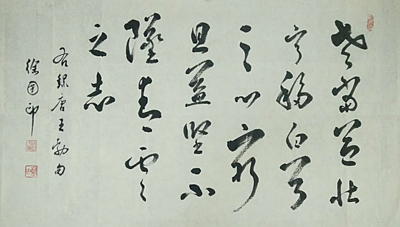 老當益壯
寧移白首
之心窮
且益堅不
墜青雲
之志
右錄唐王勃句
徐